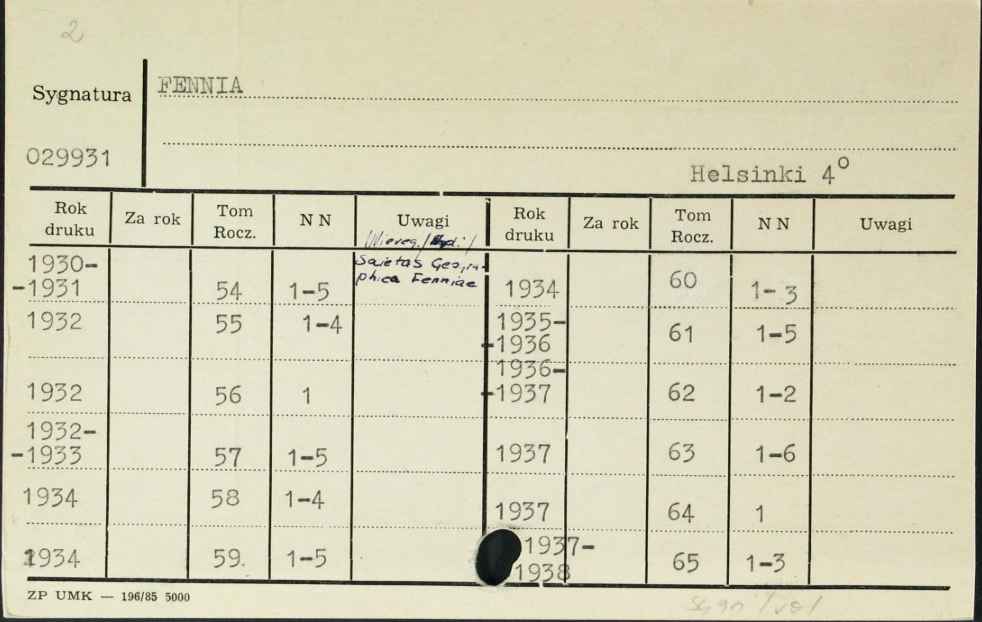 2
Sygnatura
FENNIA
029931
Helsinki 4º
Rok druku Za rok Tom Rocz. N N Uwagi Rok druku Za rok Tom Rocz. N N Uwagi
Societas Geogra-
phica Fenniae
1930-
-1931 54 1-5
1932 55 1-4
1932 56 1
1932-
-1933 57 1-5
1934 58 1-4
1934 59. 1-5
1934 60 1-3
1935-
-1936 61 1-5
1936-
-1937 62 1-2
1937 63 1-6
1937 64 1
1937-
1938 65 1-3
ZP UMK — 196/85 5000